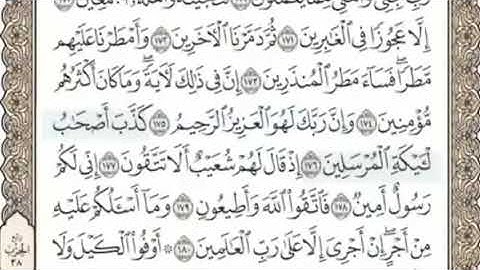 إِلَّا عَجُوزًا فِي ٱلْغَٰبِرِينَ ١٧١ ثُمَّ دَمَّرْنَا ٱلْءَاخَرِينَ ١٧٢ وَأَمْطَرْنَا عَلَيْهِم
مَّطَرًا ۖ فَسَآءَ مَطَرُ ٱلْمُنذَرِينَ ١٧٣ إِنَّ فِي ذَٰلِكَ لَءَايَةً ۖ وَمَا كَانَ أَكْثَرُهُم
مُّؤْمِنِينَ ١٧٤ وَإِنَّ رَبَّكَ لَهُوَ ٱلْعَزِيزُ ٱلرَّحِيمُ ١٧٥ كَذَّبَ أَصْحَٰبُ
لْـَٔيْكَةِ ٱلْمُرْسَلِينَ ١٧٦ إِذْ قَالَ لَهُمْ شُعَيْبٌ أَلَا تَتَّقُونَ ١٧٧ إِنِّي لَكُمْ
رَسُولٌ أَمِينٌ ١٧٨ فَٱتَّقُوا۟ ٱللَّهَ وَأَطِيعُونِ ١٧٩ وَمَآ أَسْـَٔلُكُمْ عَلَيْهِ
مِنْ أَجْرٍ ۖ إِنْ أَجْرِيَ إِلَّا عَلَىٰ رَبِّ ٱلْعَٰلَمِينَ ١٨٠ ۞ أَوْفُوا۟ ٱلْكَيْلَ وَلَا
الحزب
٣٨